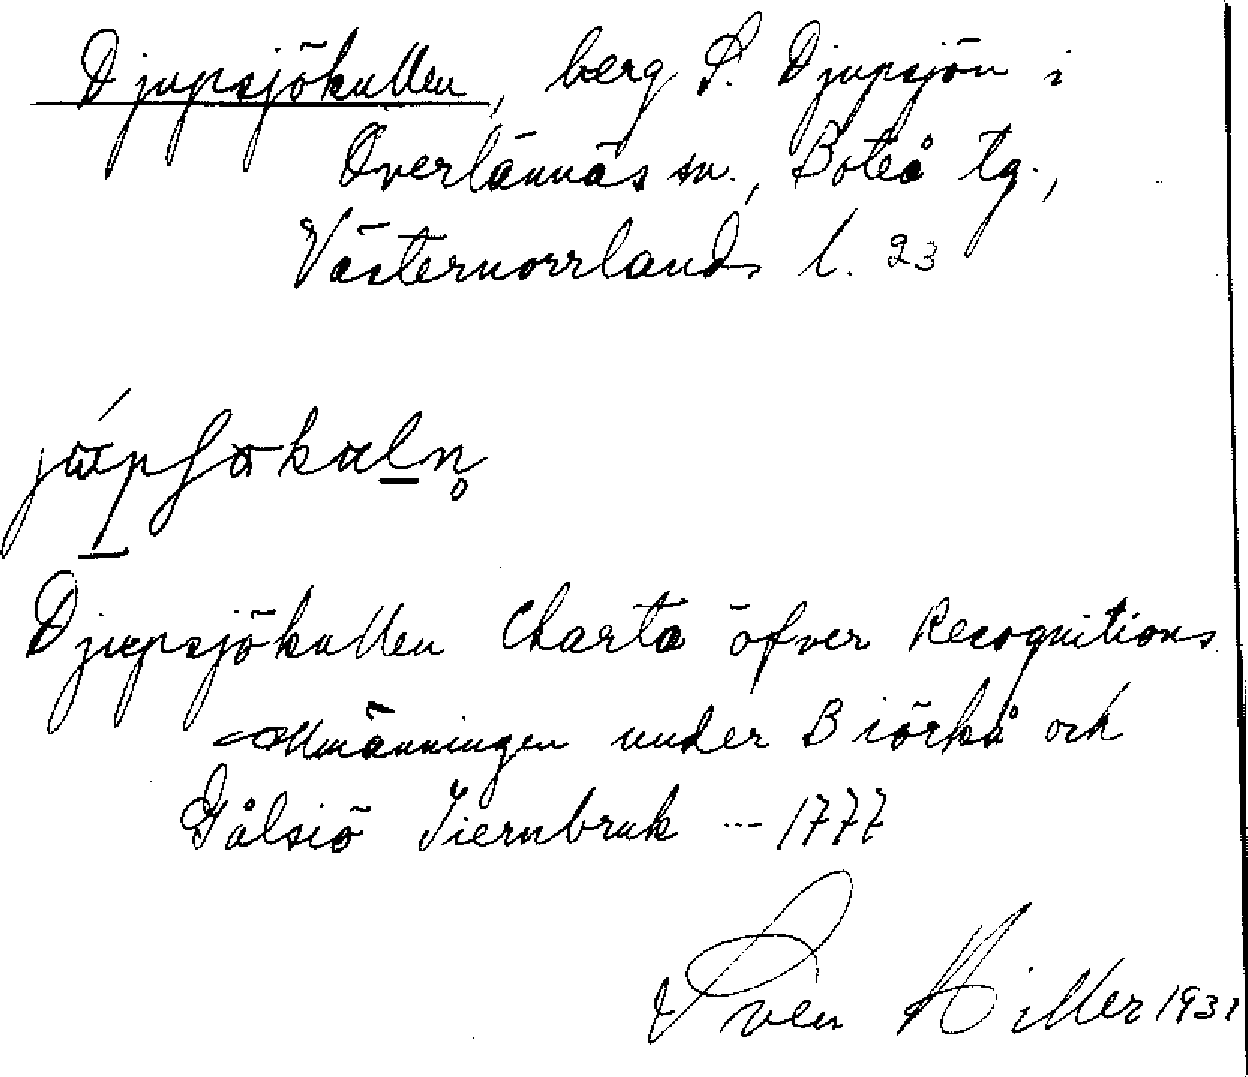 Djupsjökullen, berg S. Djupsjön i
Överlännäs sn., Boteå tg.,
Västernorrlands l. 23
Djupsjökullen Charta öfver Recognitions
Allmänningen under Biörkå och
Gålsiö Jiernbruk --- 1777
Sven Hiller 1931